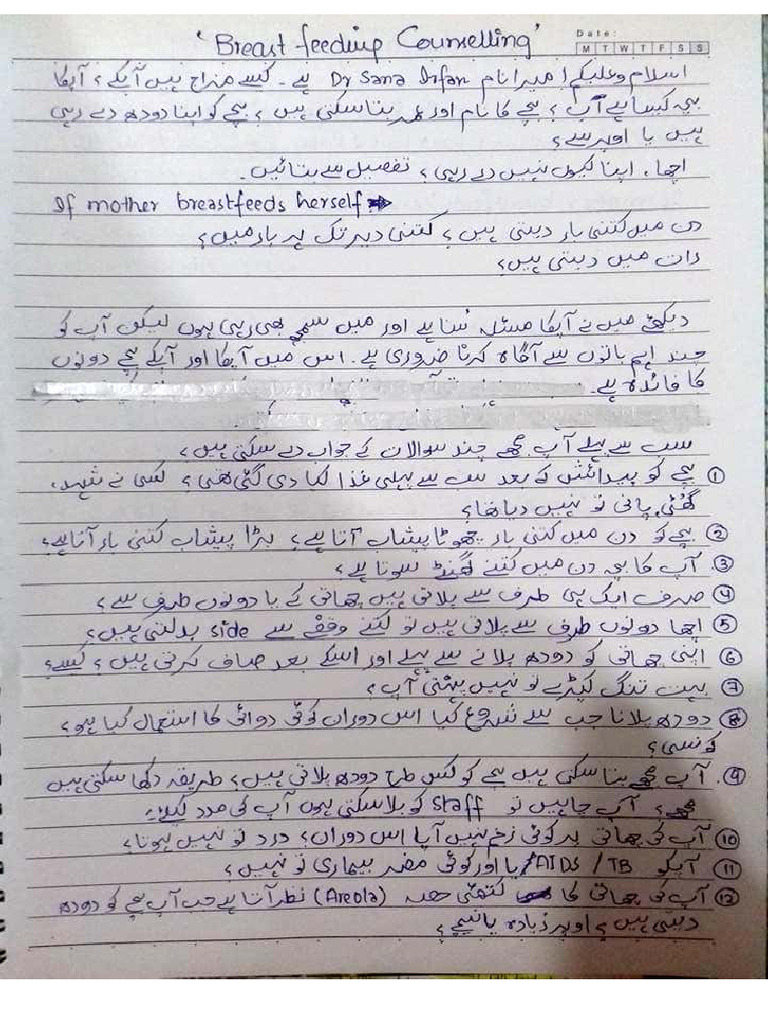 'Breast feeding Counselling'
Date:
M T W T F S S
اسلام وعلیکم! میرا نام Dr Sana Irfan ہے۔ کیسے مزاج ہیں آپکے؟ آپکا
بچہ کیسا ہے آپ؟ بچے کا نام اور عمر بتا سکتی ہیں؟ بچے کو اپنا دودھ دے رہی
ہیں یا اوپر سے؟
اچھا، اپنا کیوں نہیں دے رہی؟ تفصیل سے بتائیں۔
If mother breastfeeds herself →
دن میں کتنی بار دیتی ہیں؟ کتنی دیر تک ہر بار میں؟
رات میں دیتی ہیں؟
دیکھئے میں نے آپکا مسئلہ سنا ہے اور میں سمجھ بھی رہی ہوں لیکن آپ کو
چند اہم باتوں سے آگاہ کرنا ضروری ہے۔ اس میں آپکا اور آپکے بچے دونوں
کا فائدہ ہے۔
سب سے پہلے آپ مجھے چند سوالات کے جواب دے سکتی ہیں؟
① بچے کو پیدائش کے بعد سب سے پہلی غذا کیا دی گئی تھی؟ کسی نے شہد،
گھٹی، پانی تو نہیں دیا تھا؟
② بچے کو دن میں کتنی بار چھوٹا پیشاب آتا ہے؟ بڑا پیشاب کتنی بار آتا ہے؟
③ آپ کا بچہ دن میں کتنے گھنٹے سوتا ہے؟
④ صرف ایک ہی طرف سے پلاتی ہیں چھاتی کے یا دونوں طرف سے؟
⑤ اچھا دونوں طرف سے پلاتی ہیں تو کتنے وقفے سے side بدلتی ہیں؟
⑥ اپنی چھاتی کو دودھ پلانے سے پہلے اور اسکے بعد صاف کرتی ہیں؟ کیسے؟
⑦ بہت تنگ کپڑے تو نہیں پہنتی آپ؟
⑧ دودھ پلانا جب سے شروع کیا اس دوران کوئی دوائی کا استعمال کیا ہو؟
کونسی؟
⑨ آپ مجھے بتا سکتی ہیں بچے کو کس طرح دودھ پلاتی ہیں؟ طریقہ دکھا سکتی ہیں
مجھے؟ آپ چاہیں تو staff کو بلا سکتی ہوں آپ کی مدد کیلئے۔
⑩ آپ کی چھاتی پر کوئی زخم نہیں آیا اس دوران؟ درد تو نہیں ہوتا؟
⑪ آپکو AIDS / TB یا اور کوئی مضر بیماری تو نہیں؟
⑫ آپ کی چھاتی کا کتھئی حصہ (Areola) نظر آتا ہے جب آپ بچے کو دودھ
دیتی ہیں؟ اوپر زیادہ یا نیچے؟